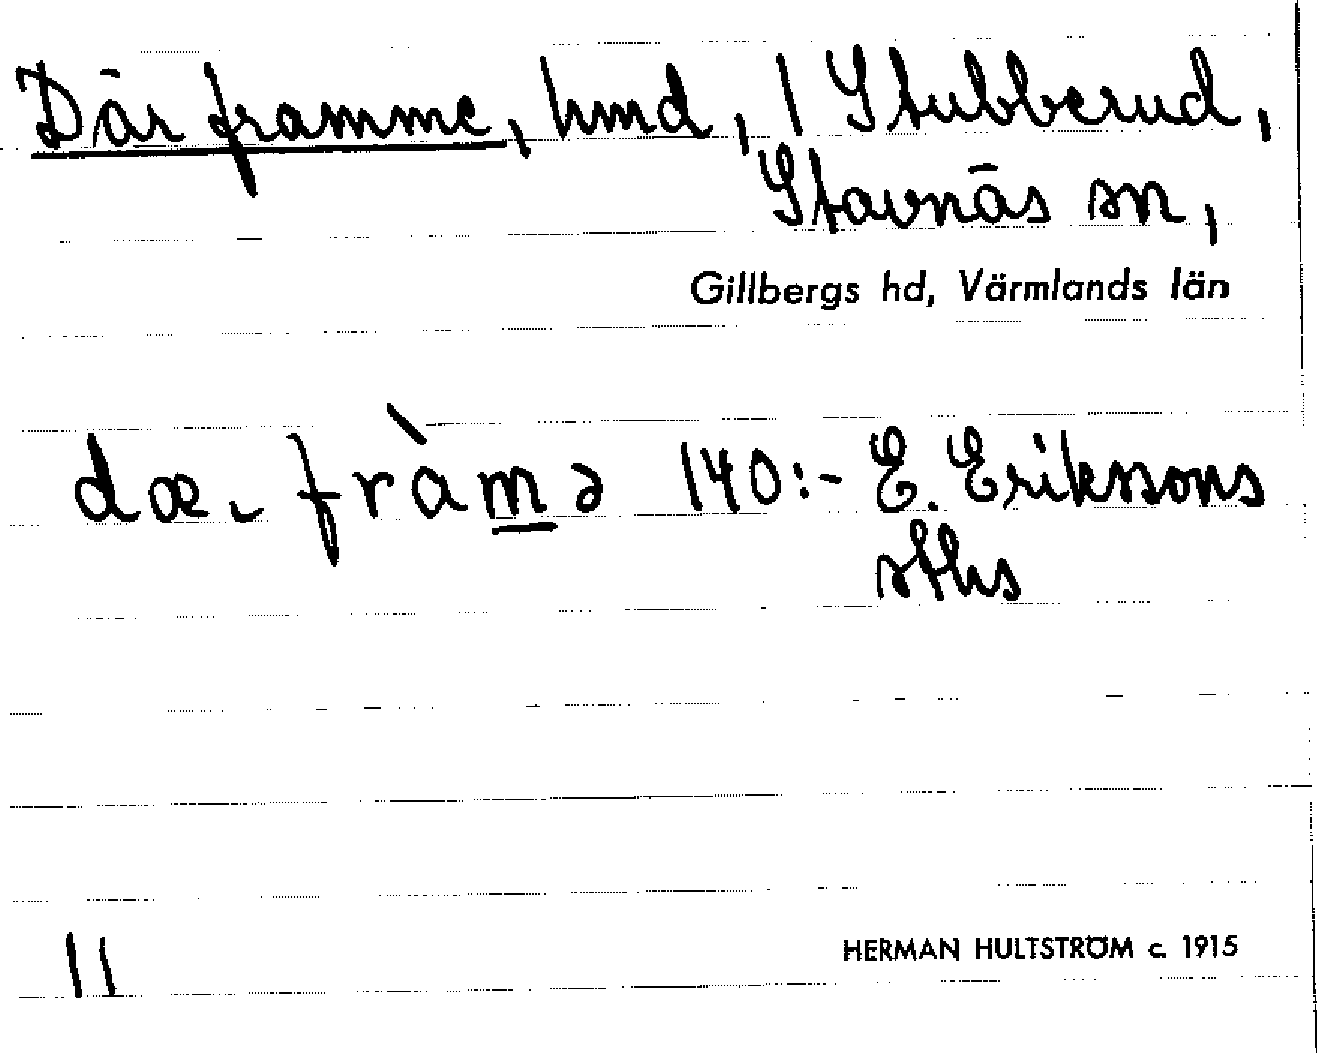 Där framme, hmd, 1 Stubberud,
Stavnäs sn,
Gillbergs hd, Värmlands län
dæ. fràmə 140:- E. Erikssons
sths
11
HERMAN HULTSTRÖM c. 1915